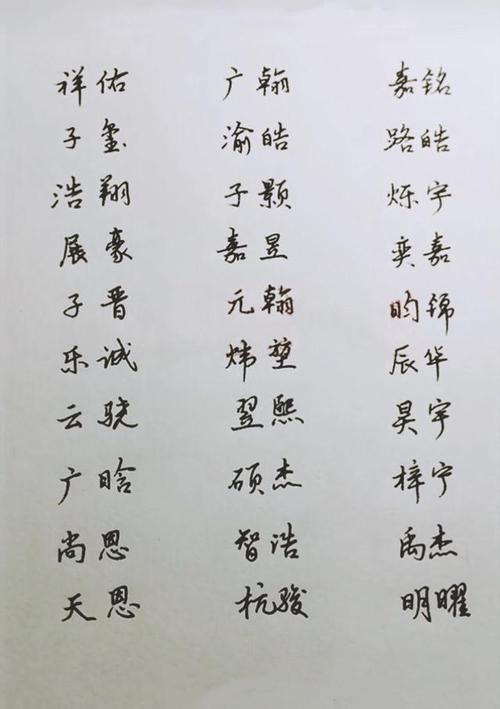 祥佑 广翰 嘉铭
子玺 渝皓 路皓
浩翔 子颢 烁宇
展豪 嘉昱 奕嘉
子晋 元翰 昀锦
乐诚 炜堃 辰华
云骁 翌熙 昊宇
广晗 硕杰 梓宁
尚恩 智浩 禹杰
天恩 杭骏 明曜